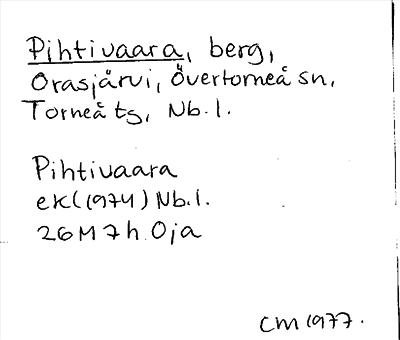 Pihtivaara, berg,
Orasjärvi, Övertorneå sn,
Torneå tg, Nb.l.
Pihtivaara
ek(1974) Nb.l.
26M7h Oja
CM 1977.